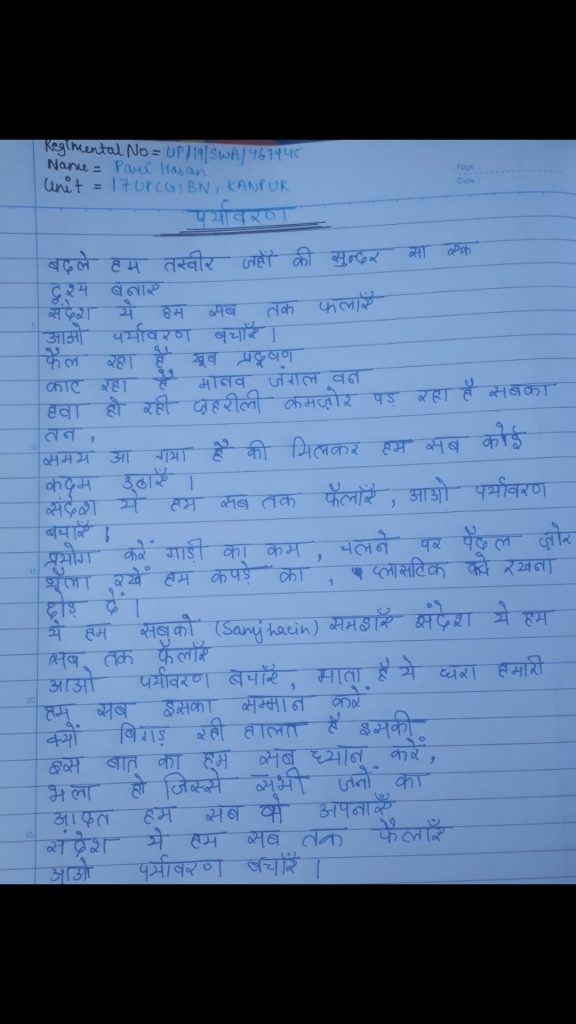 Regimental No = UP/19/SWA/467945
Name = Pari Hasan
Unit = 17 UP(G) BN, KANPUR
Page :
Date :
पर्यावरण
बदले हम तस्वीर जहाँ की सुन्दर सा एक
दृश्य बनाऐं
संदेश ये हम सब तक फलाऐं
आओ पर्यावरण बचाऐं।
फैल रहा है खूब प्रदूषण
काट रहा है मानव जंगल वन
हवा हो रही ज़हरीली कमज़ोर पड़ रहा है सबका
तन,
समय आ गया है की मिलकर हम सब कोई
कदम उठाऐं।
संदेश ये हम सब तक फैलाऐं, आओ पर्यावरण
बचाऐं।
प्रयोग करें गाड़ी का कम, चलने पर पैदल ज़ोर
थैला रखें हम कपड़े का, प्लासटिक को रखना
छोड़ दें।
ये हम सबको (Samjhacin) समझाऐं संदेश ये हम
सब तक फैलाऐं
आओ पर्यावरण बचाऐं, माता है ये धरा हमारी
हम सब इसका सम्मान करें
क्यों बिगड़ रही हालत है इसकी
इस बात का हम सब ध्यान करें,
भला हो जिस्से सभी जनों का
आदत हम सब वो अपनाऐं
संदेश ये हम सब तक फैलाऐं
आओ पर्यावरण बचाऐं।